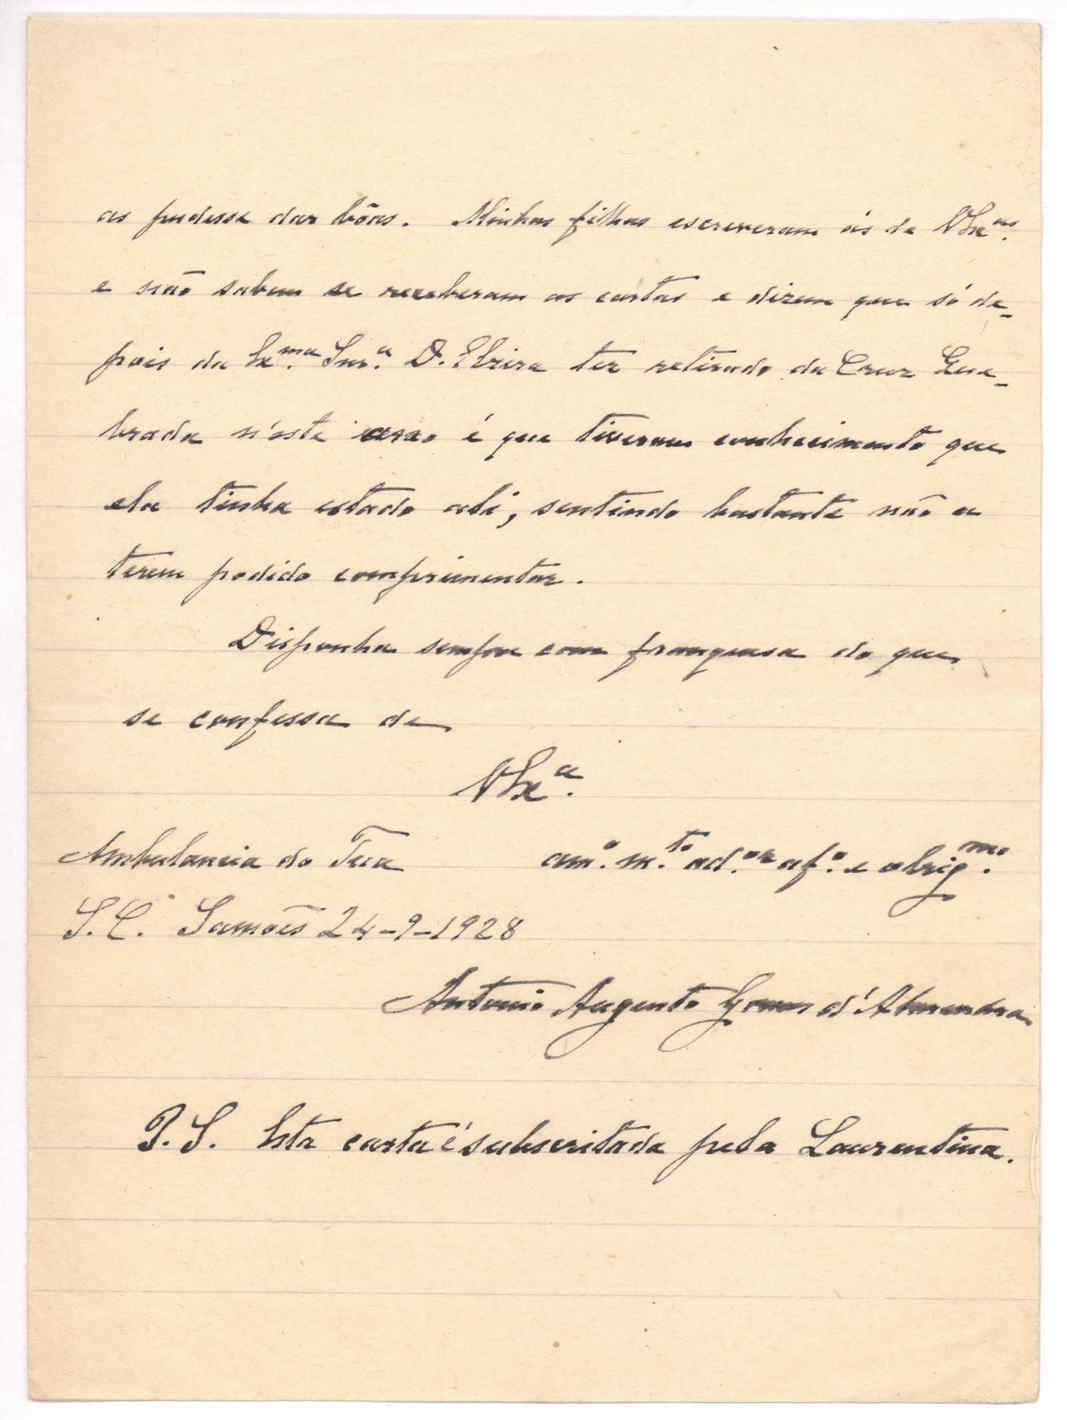 as pudesse dar bôas. Minhas filhas escreveram ás de VEx.as
e não sabem se receberam as cartas e dizem que só de-
pois da Ex.ma Snr.a D. Elzira ter retirado da Cruz Que-
brada n'este anno é que tiveram conhecimento que
ela tinha estado ali, sentindo bastante não a
terem podido comprimentar.
Disponha sempre com franquesa do que
se confessa de
VEx.a
Ambulancia do Tua am.o m.to ad.or af.o e obrig.mo
S.C. Samões 24-9-1928
Antonio Augusto Gomes d'Almendra
P.S. Esta carta é subscritada pela Laurentina.